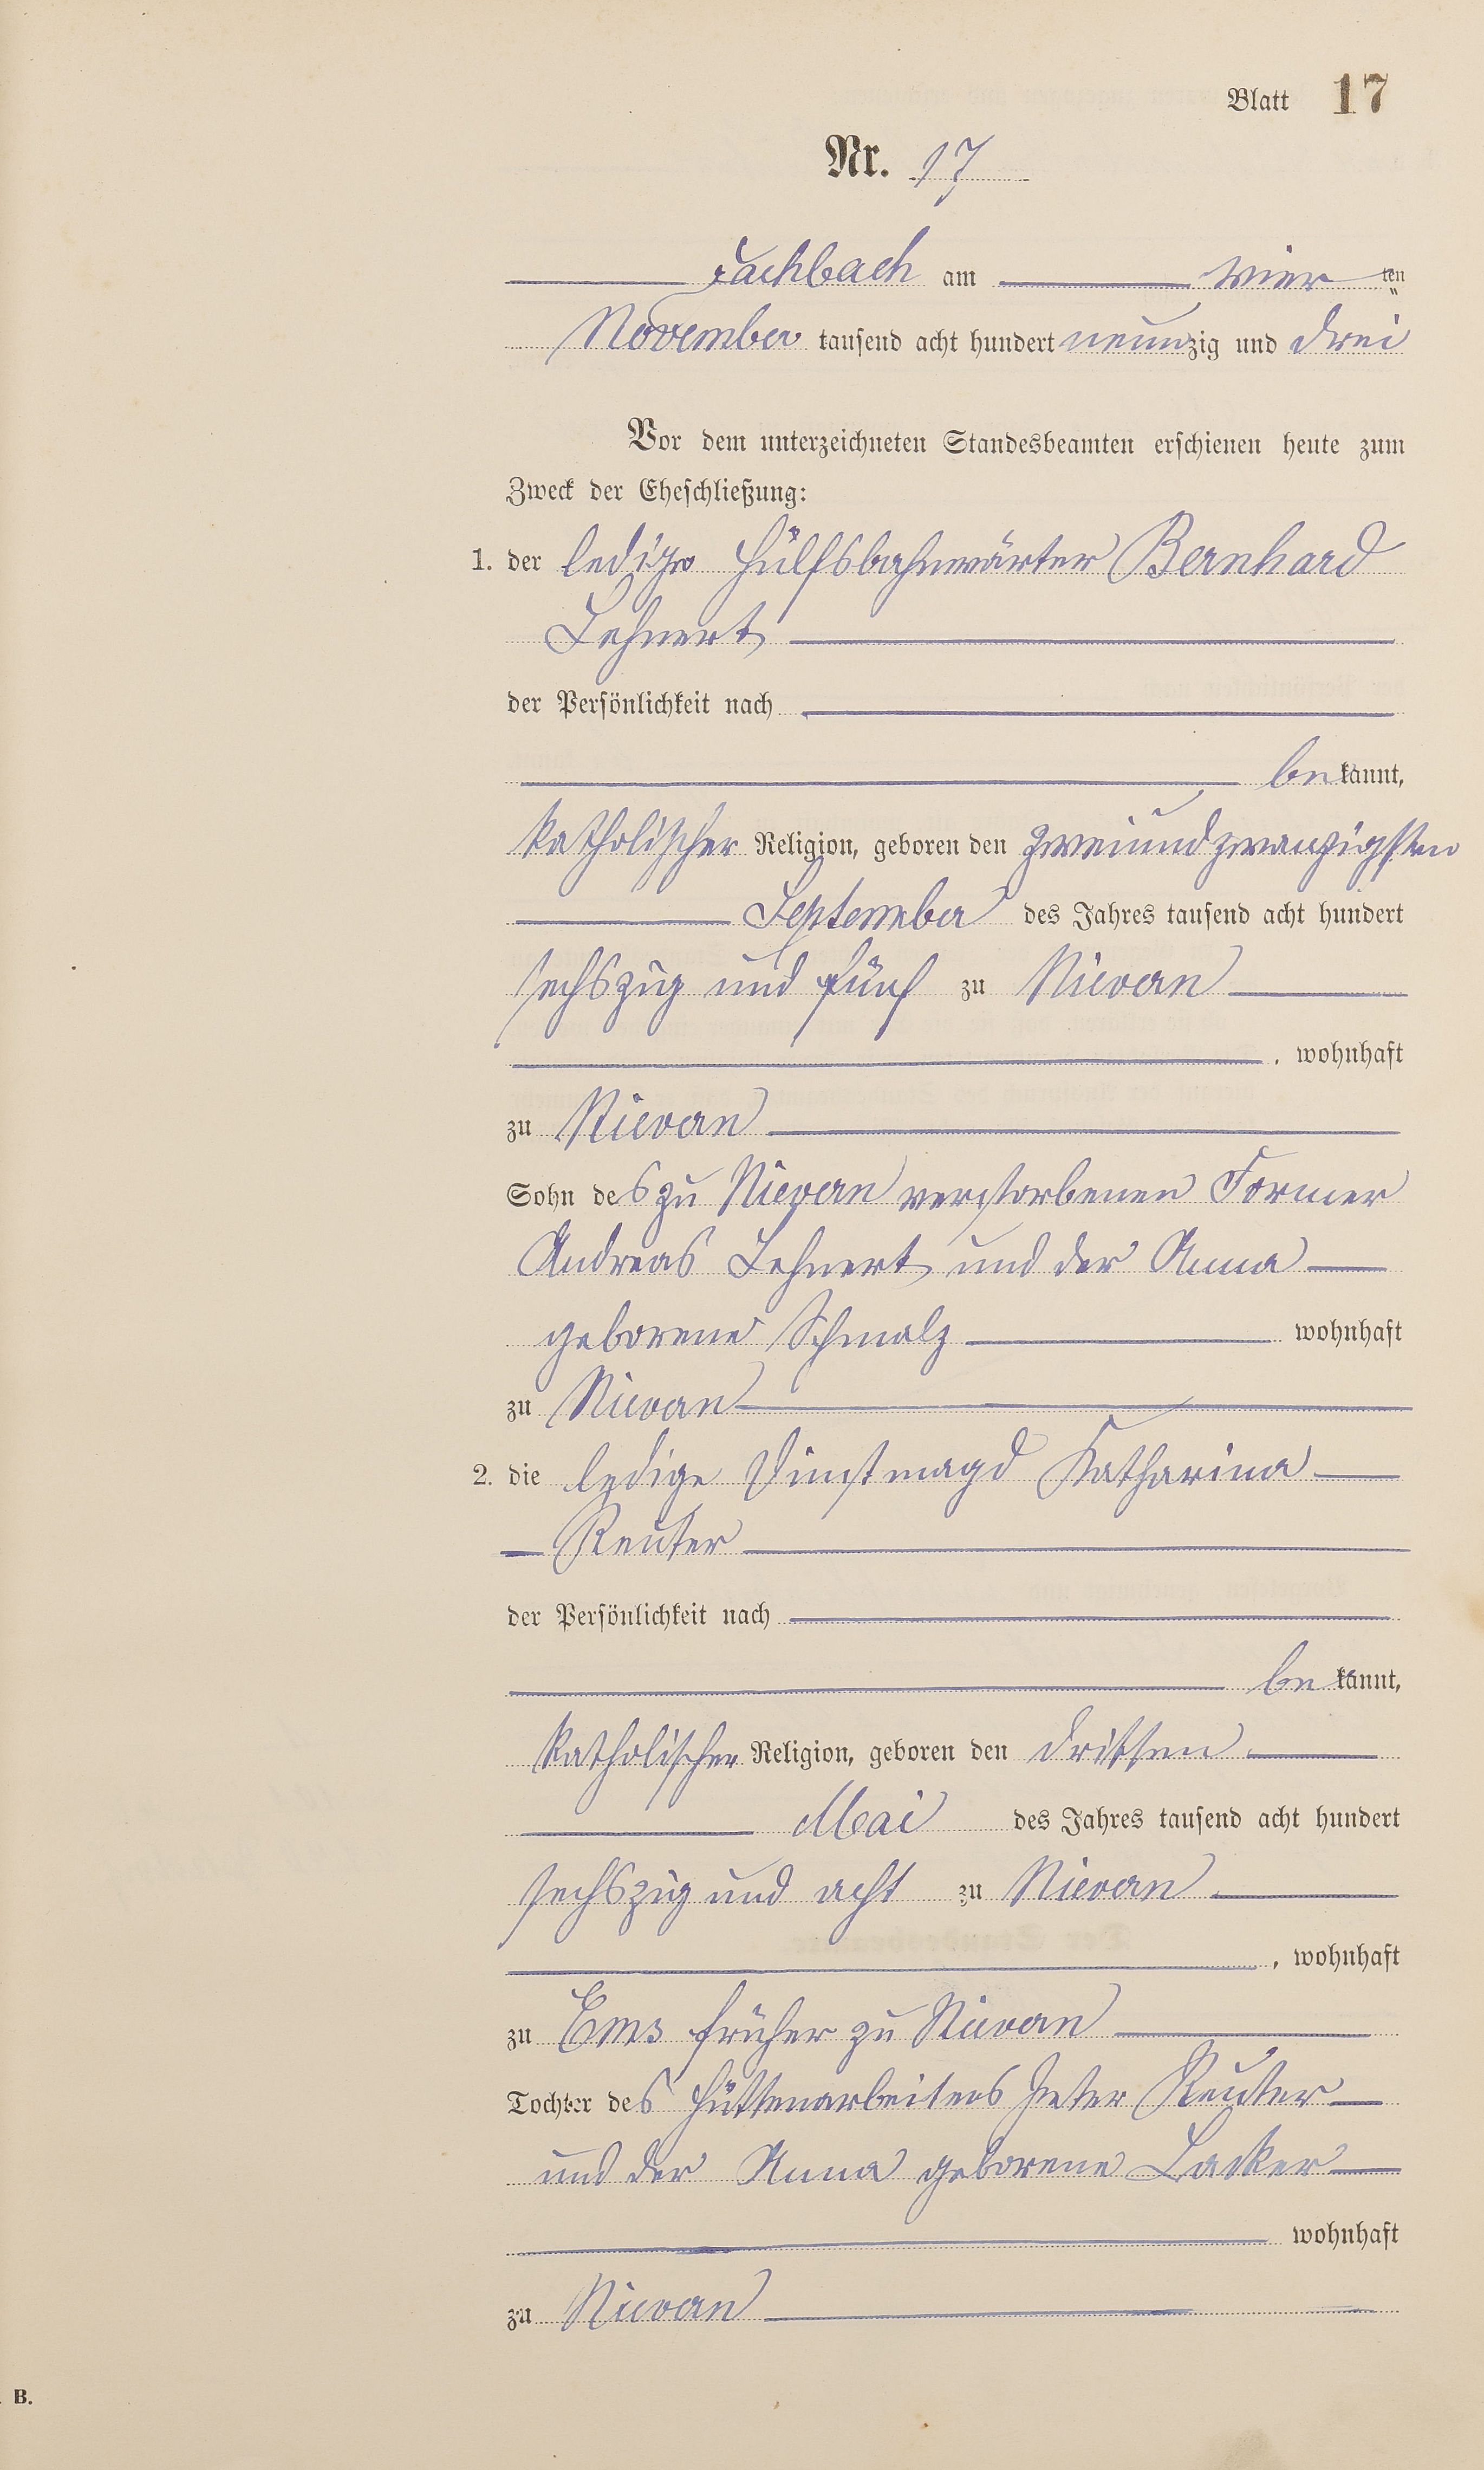 Blatt 17
Nr. 17
Fachbach am vier ten
November tausend acht hundert neunzig und drei
Vor dem unterzeichneten Standesbeamten erschienen heute zum
Zweck der Eheschließung:
1. der ledige Hülfsbahnwärter Bernhard
Lehnert
der Persönlichkeit nach
bekannt,
katholischer Religion, geboren den zweiundzwanzigsten
September des Jahres tausend acht hundert
sechszig und fünf zu Nievern
, wohnhaft
zu Nievern
Sohn des zu Nievern verstorbenen Former
Andreas Lehnert und der Anna
geborene Schmalz wohnhaft
zu Nievern
2. die ledige Dienstmagd Katharina
Reuter
der Persönlichkeit nach
bekannt,
katholischer Religion, geboren den dritten
Mai des Jahres tausend acht hundert
sechszig und acht zu Nievern
, wohnhaft
zu Ems früher zu Nievern
Tochter des Hüttenarbeiters Peter Reuter
und der Anna geborene Lacker
wohnhaft
zu Nievern
B.